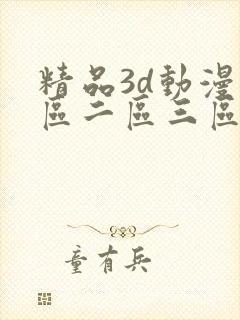 精品3d動漫
區二區三區
童有兵